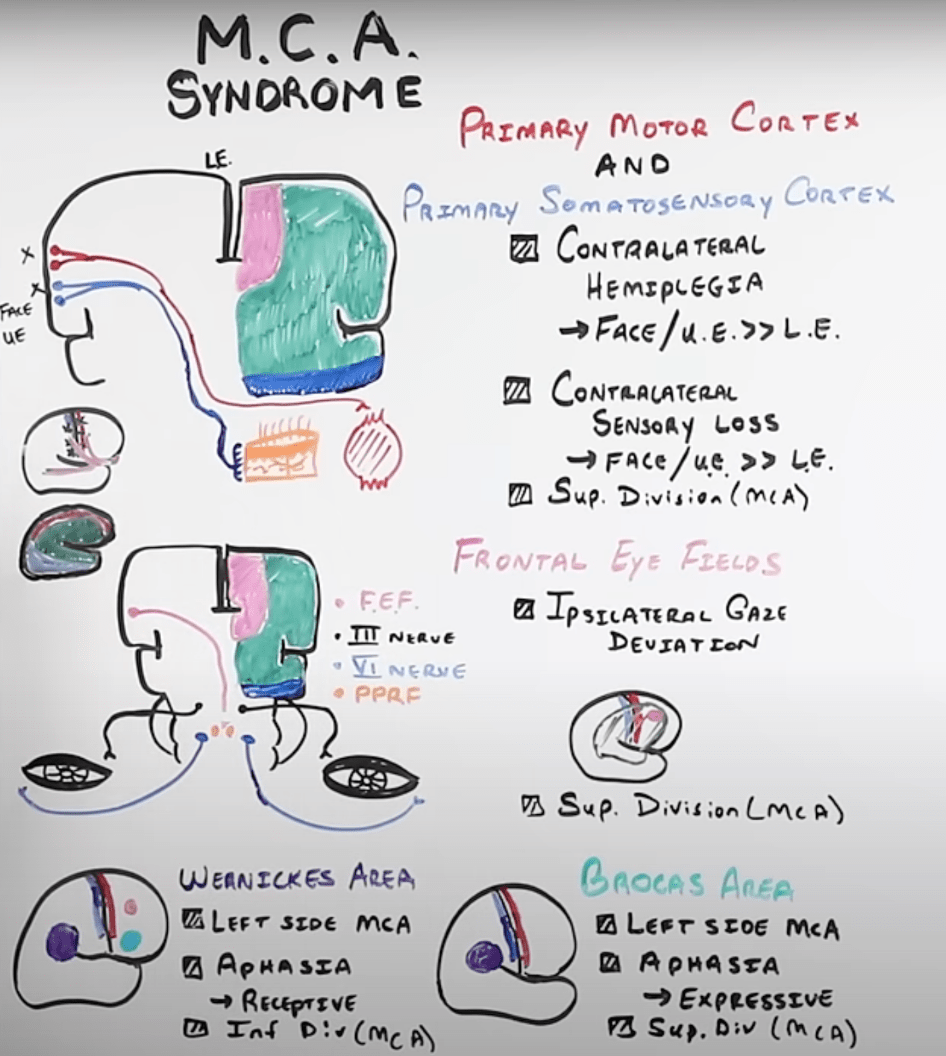 M.C.A.
SYNDROME
L.E.
X
X
FACE
UE
PRIMARY MOTOR CORTEX
AND
PRIMARY SOMATOSENSORY CORTEX
CONTRALATERAL
HEMIPLEGIA
→ FACE/U.E. >> L.E.
CONTRALATERAL
SENSORY LOSS
→ FACE/U.E. >> L.E.
SUP. DIVISION (MCA)
• F.E.F.
• III NERVE
• VI NERVE
• PPRF
FRONTAL EYE FIELDS
IPSILATERAL GAZE
DEVIATION
SUP. DIVISION (MCA)
WERNICKES AREA
LEFT SIDE MCA
APHASIA
→ RECEPTIVE
INF DIV (MCA)
BROCAS AREA
LEFT SIDE MCA
APHASIA
→ EXPRESSIVE
SUP. DIV (MCA)